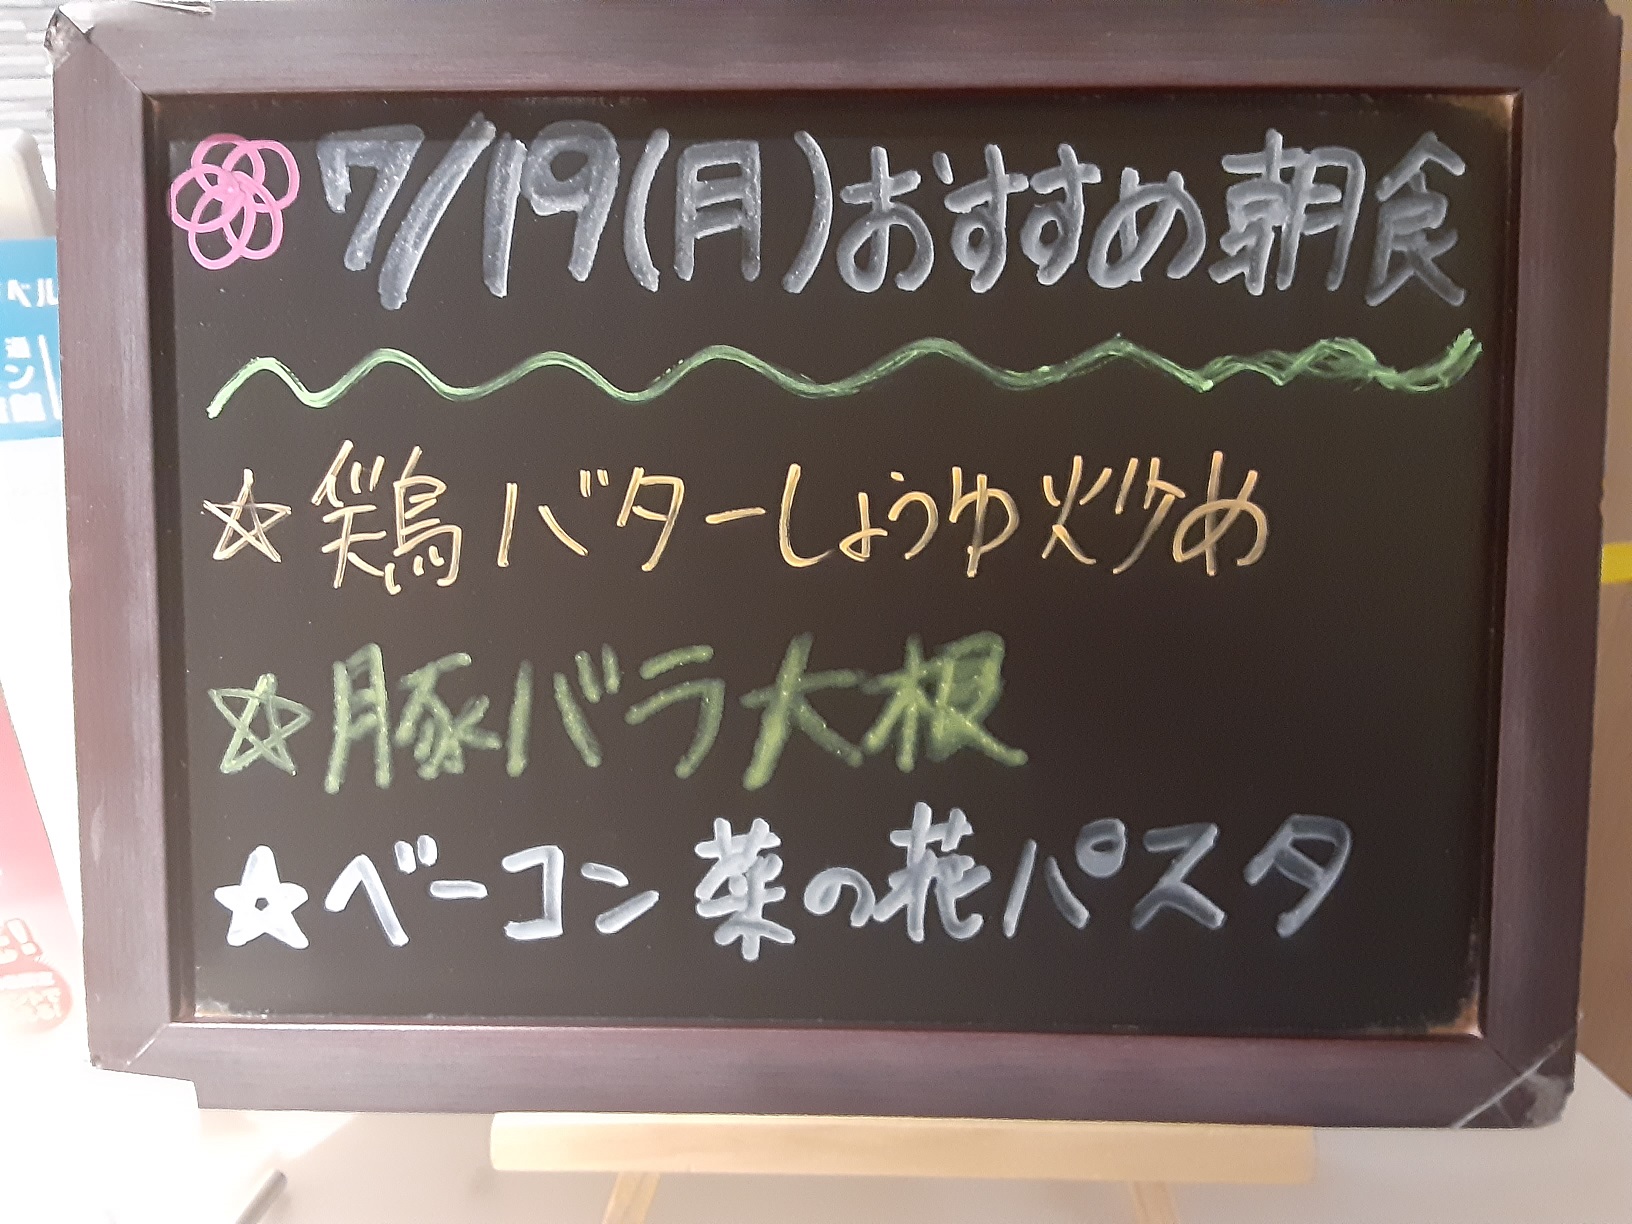 7/19(月)おすすめ朝食
☆鶏バターしょうゆ炒め
☆豚バラ大根
☆ベーコン菜の花パスタ
ベル